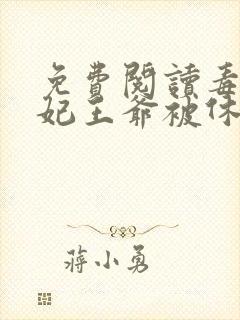 免費閱讀毒
妃王爺被休
蔣小勇